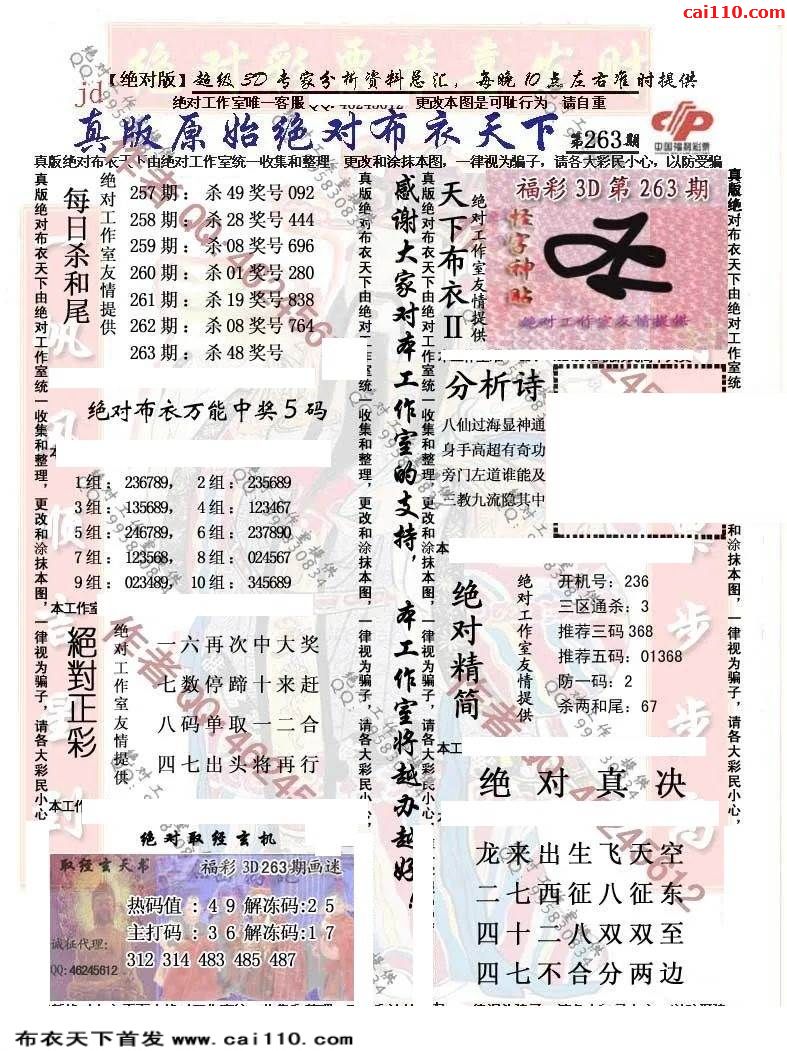 cai110.com
【绝对版】超级3D专家分析资料总汇，每晚10点左右准时提供
jd
绝对工作室唯一客服QQ:46245612 更改本图是可耻行为 请自重
真版原始绝对布衣天下
第263期
中国福利彩票
真版绝对布衣天下由绝对工作室统一收集和整理，更改和涂抹本图，一律视为骗子，请各大彩民小心，以防受骗
每日杀和尾
绝对工作室友情提供
257期：杀49奖号092
258期：杀28奖号444
259期：杀08奖号696
260期：杀01奖号280
261期：杀19奖号838
262期：杀08奖号764
263期：杀48奖号
绝对布衣万能中奖5码
1组：236789， 2组：235689
3组：135689， 4组：123467
5组：246789， 6组：237890
7组：123568， 8组：024567
9组：023489， 10组：345689
本工作室
絕對正彩
绝对工作室友情提供
一六再次中大奖
七数停蹄十来赶
八码单取一二合
四七出头将再行
本工作
绝对取经玄机
取经玄天书
福彩3D263期画迷
热码值：49解冻码:25
主打码：36解冻码:17
312 314 483 485 487
诚征代理:
QQ:46245612
真版绝对布衣天下由绝对工作室统一收集和整理，更改和涂抹本图，一律视为骗子，请各大彩民小心，
感谢大家对本工作室的支持，本工作室将越办越好！
真版绝对布衣天下由绝对工作室统一收集和整理，更改和涂抹本图，一律视为骗子，请各大彩民小心，
天下布衣II
绝对工作室友情提供
福彩3D第263期
怪字神贴
绝对工作室友情提供
分析诗
八仙过海显神通
身手高超有奇功
旁门左道谁能及
二教九流隐其中
绝对精简
绝对工作室友情提供
开机号：236
三区通杀：3
推荐三码368
推荐五码：01368
防一码：2
杀两和尾：67
本工
绝对真决
龙来出生飞天空
二七西征八征东
四十二八双双至
四七不合分两边
布衣天下首发 www.cai110.com